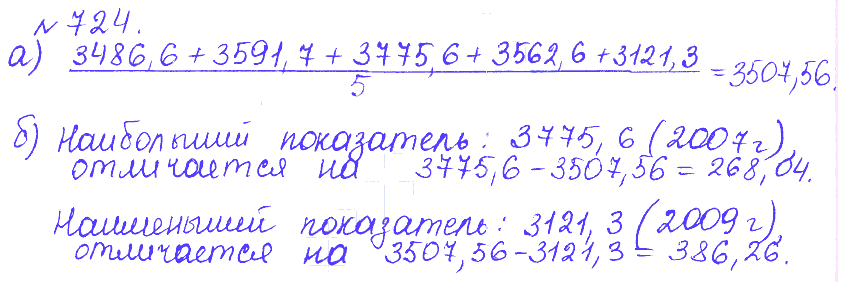 № 724.
а) 3486,6 + 3591,7 + 3775,6 + 3562,6 + 3121,3 / 5 = 3507,56.
б) Наибольший показатель: 3775,6 (2007г),
отличается на 3775,6 – 3507,56 = 268,04.
Наименьший показатель: 3121,3 (2009г),
отличается на 3507,56 – 3121,3 = 386,26.